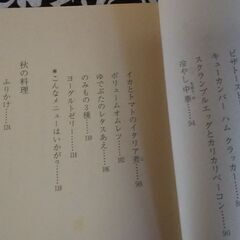 キューカンバー ハム クラッカー
スクランブルエッグとカリカリベーコン……90
冷やし中華……94
イカとトマトのイタリア煮……98
ボリュームオムレツ……102
ゆでぶたのレタスあえ……106
のみもの3種……110
ヨーグルトゼリー……114
こんなメニューはいかが?……118
秋の料理
ふりかけ……124